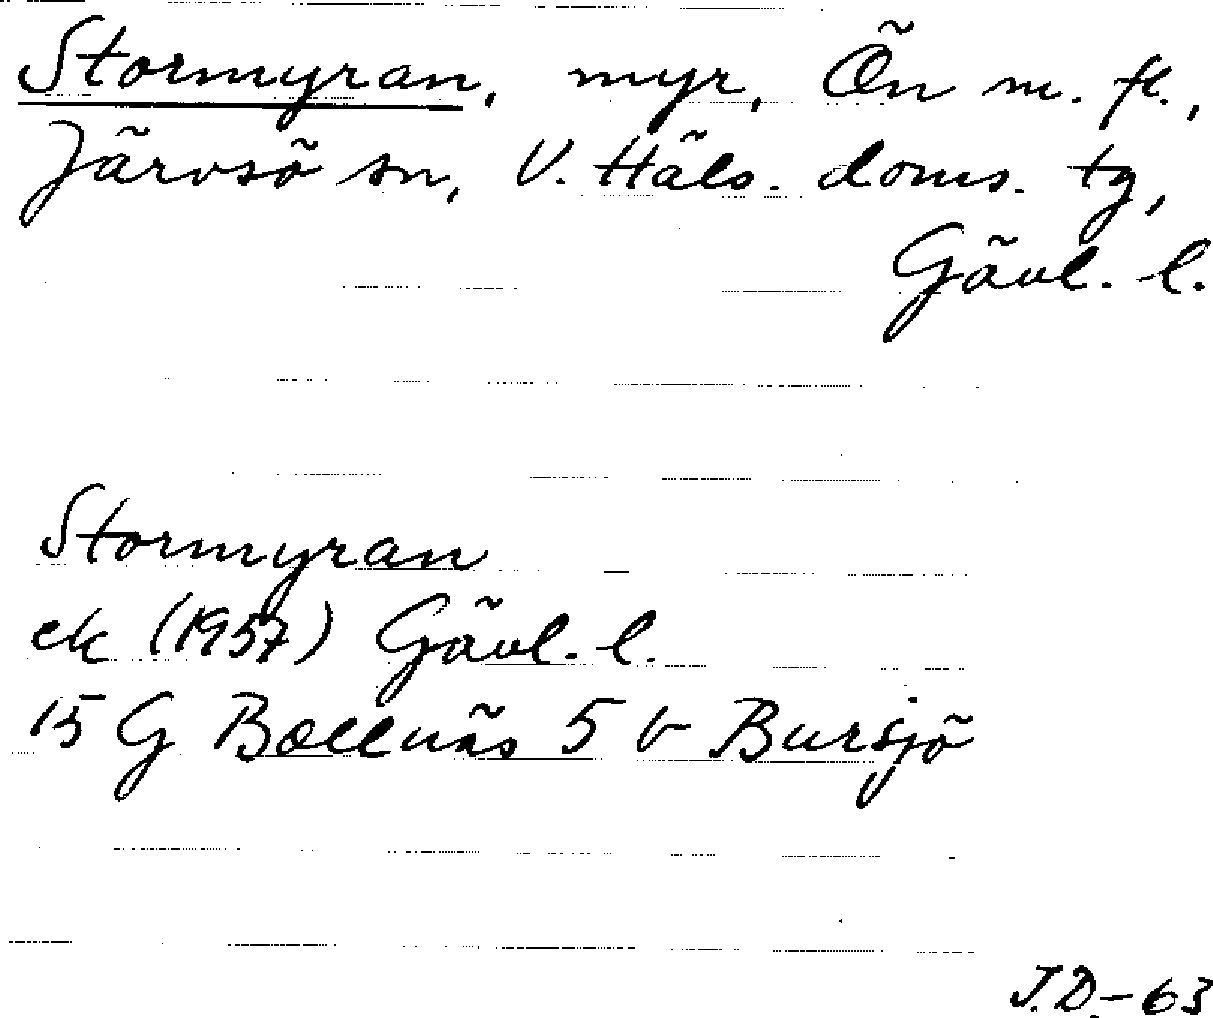 Stormyran, myr, Ön m. fl.,
Järvsö sn, V. Häls. doms. tg,
Gävl. l.
Stormyran
ek (1957) Gävl. l.
15 G Bollnäs 5 b Bursjö
J.D.-63